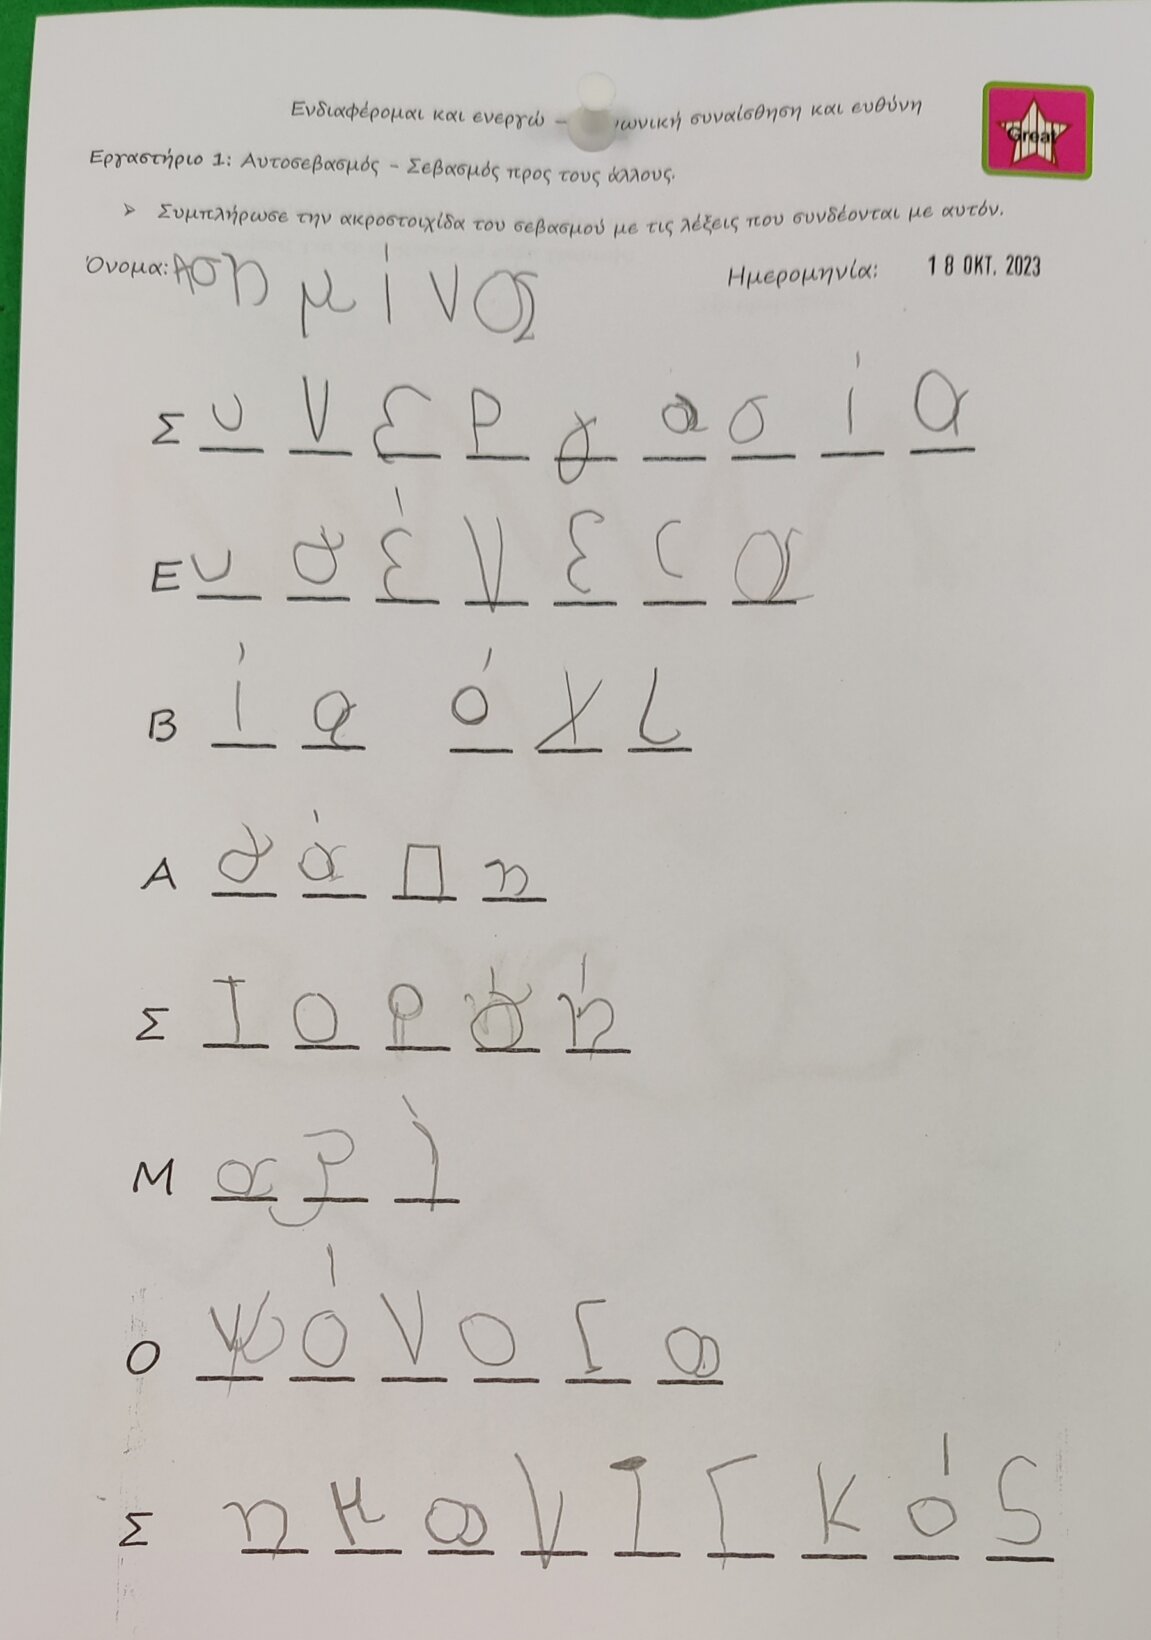 Ενδιαφέρομαι και ενεργώ – συναίσθηση και ευθύνη
Great
Εργαστήριο 1: Αυτοσεβασμός – Σεβασμός προς τους άλλους.
➢ Συμπλήρωσε την ακροστοιχίδα του σεβασμού με τις λέξεις που συνδέονται με αυτόν.
Όνομα: Ασημίνα Ημερομηνία: 18 ΟΚΤ. 2023
Συνεργασία
Ευγένεια
Βία όχι
Αγάπη
Στοργή
Μαζί
Ομόνοια
Σημαντικός